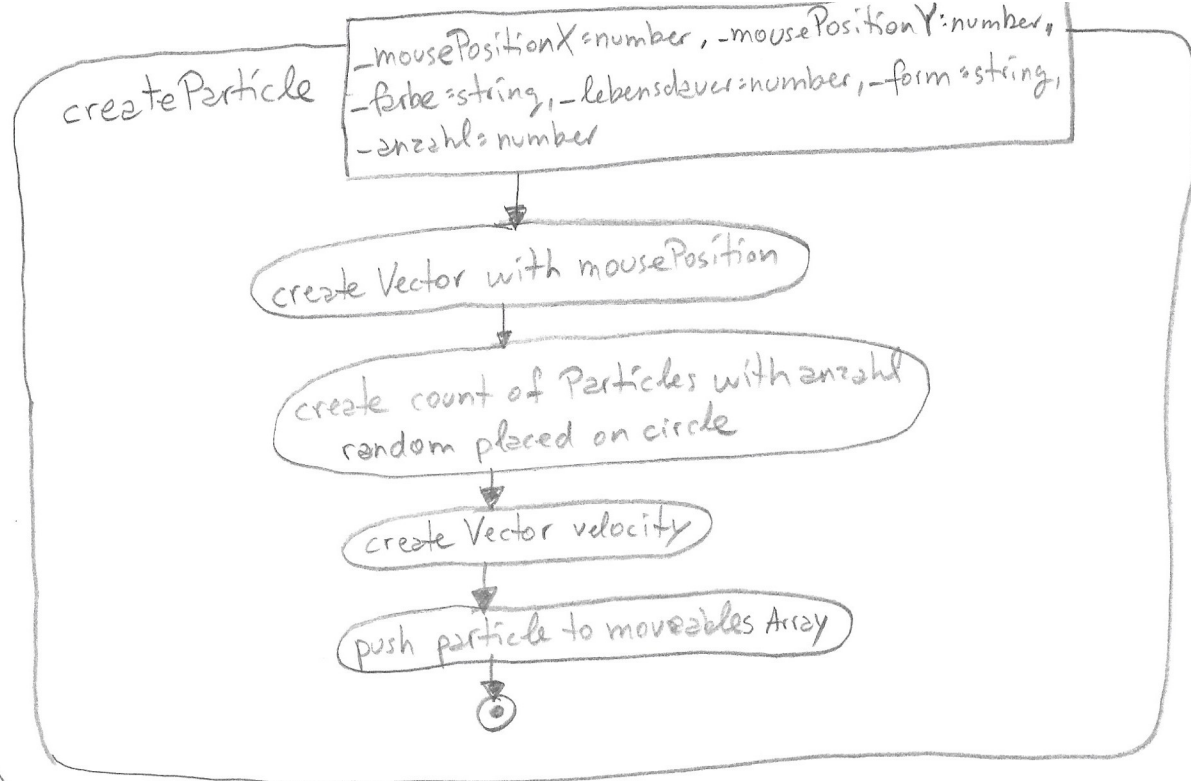 createParticle
_mousePositionX:number, _mousePositionY:number,
_farbe:string, _lebensdauer:number, _form:string,
_anzahl:number
create Vector with mousePosition
create count of Particles with anzahl
random placed on circle
create Vector velocity
push particle to moveables Array